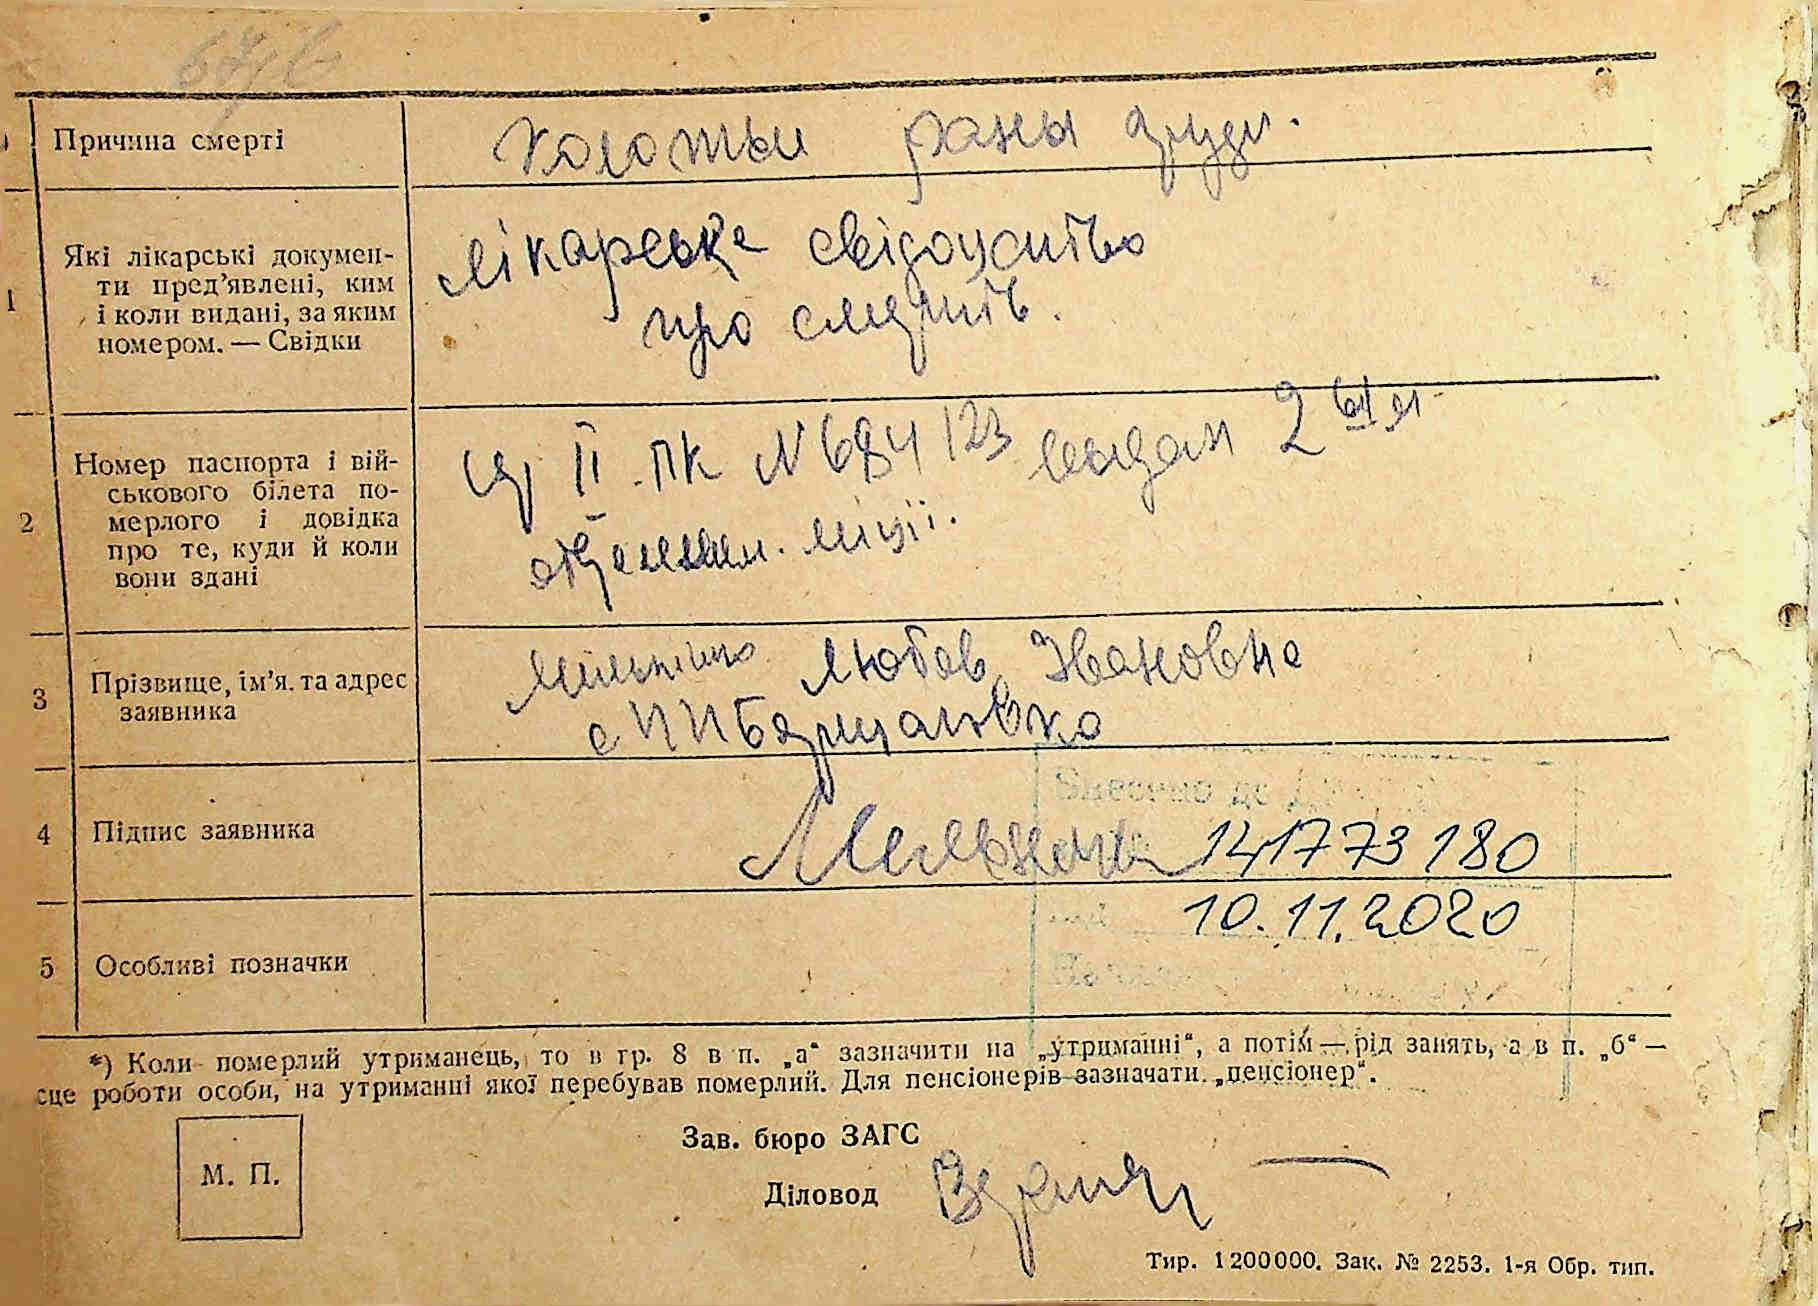 Причина смерті
Колотые раны груди.
1
Які лікарські докумен-
ти пред’явлені, ким
і коли видані, за яким
номером. — Свідки
лікарське свідоцство
про смерть.
2
Номер паспорта і вій-
ськового білета по-
мерлого і довідка
про те, куди й коли
вони здані
II ПК № 684123 выдан 2
міліції.
3
Прізвище, ім’я та адрес
заявника
Любов Ивановна
4
Підпис заявника
141773180
10.11.2020
5
Особливі позначки
*) Коли померлий утриманець, то в гр. 8 в п. „а“ зазначити на „утриманні“, а потім — рід занять, а в п. „б“ —
сце роботи особи, на утриманні якої перебував померлий. Для пенсіонерів зазначати „пенсіонер“.
М. П.
Зав. бюро ЗАГС
Діловод
Тир. 1200000. Зак. № 2253. 1-я Обр. тип.